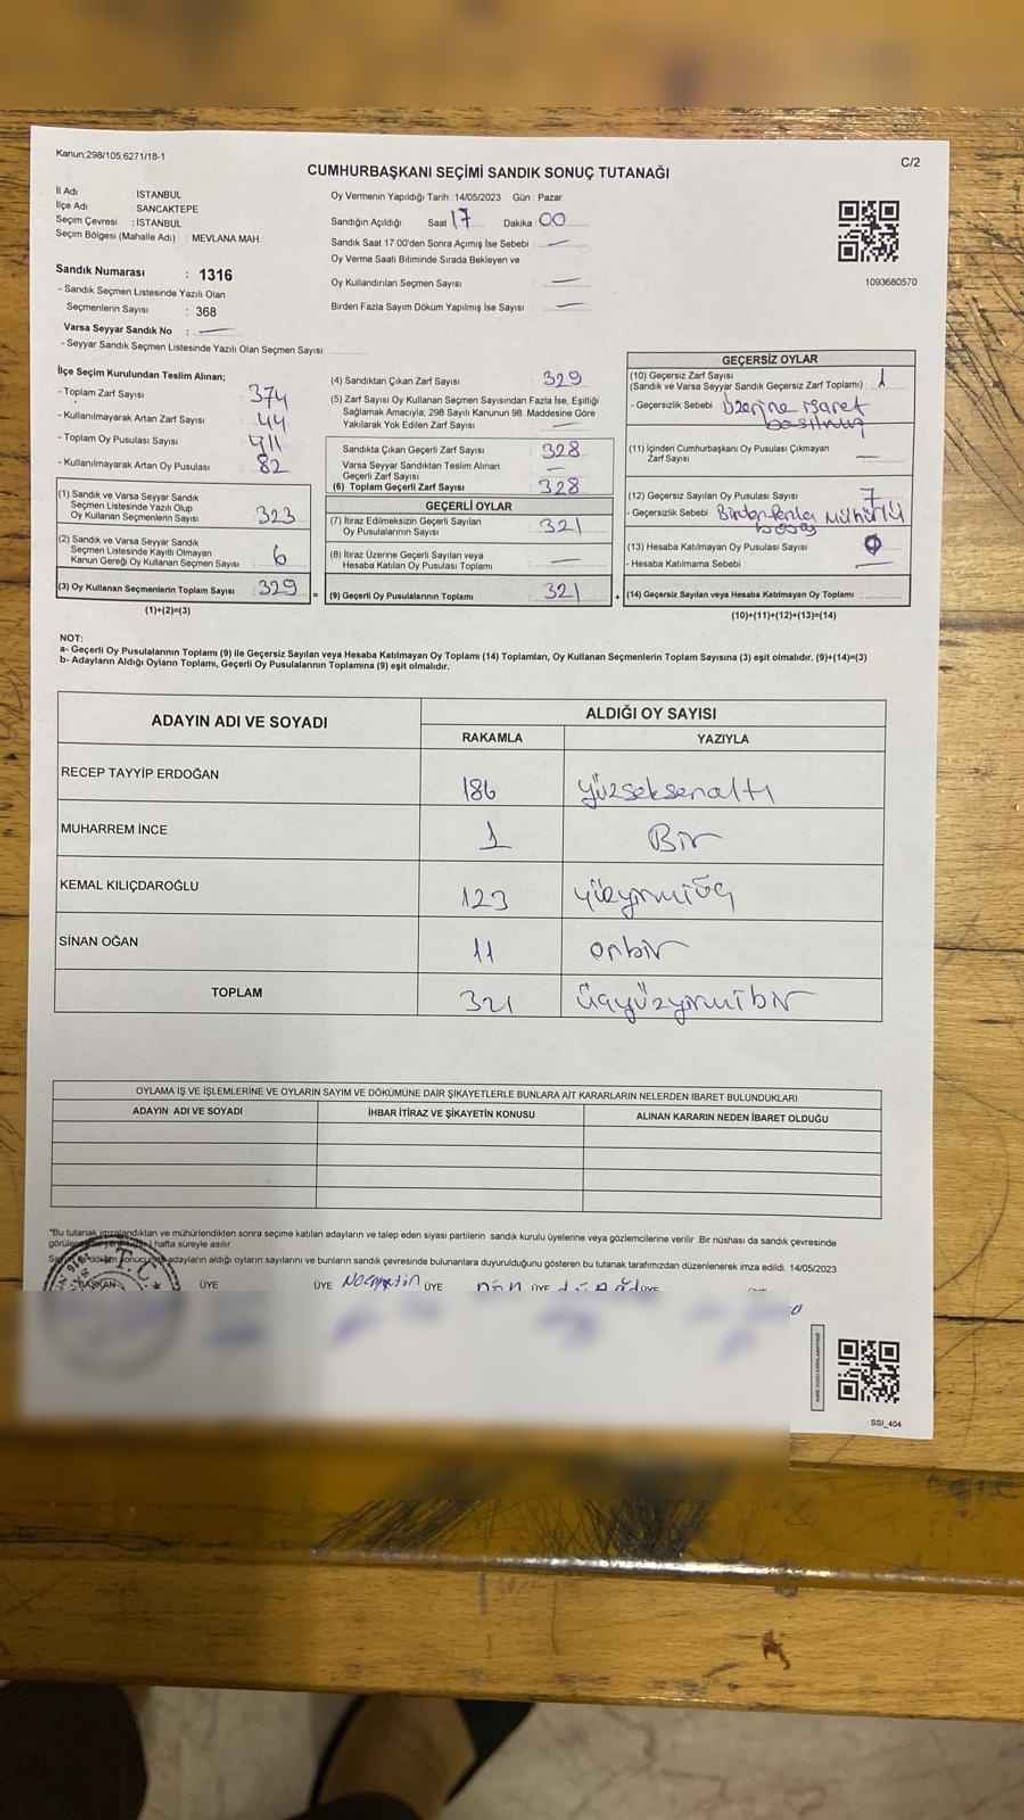 Kanun:298/105;6271/18-1
C/2
CUMHURBAŞKANI SEÇİMİ SANDIK SONUÇ TUTANAĞI
İl Adı : İSTANBUL
İlçe Adı : SANCAKTEPE
Seçim Çevresi : İSTANBUL
Seçim Bölgesi (Mahalle Adı) : MEVLANA MAH.
Sandık Numarası : 1316
- Sandık Seçmen Listesinde Yazılı Olan
Seçmenlerin Sayısı : 368
Varsa Seyyar Sandık No : —
- Seyyar Sandık Seçmen Listesinde Yazılı Olan Seçmen Sayısı:
Oy Vermenin Yapıldığı Tarih : 14/05/2023 Gün : Pazar
Sandığın Açıldığı Saat 17 Dakika : 00
Sandık Saat 17:00'den Sonra Açımış İse Sebebi : —
Oy Verme Saati Bitiminde Sırada Bekleyen ve
Oy Kullandırılan Seçmen Sayısı —
Birden Fazla Sayım Döküm Yapılmış İse Sayısı —
1093680570
İlçe Seçim Kurulundan Teslim Alınan;
- Toplam Zarf Sayısı 374
- Kullanılmayarak Artan Zarf Sayısı 44
- Toplam Oy Pusulası Sayısı 411
- Kullanılmayarak Artan Oy Pusulası 82
(1) Sandık ve Varsa Seyyar Sandık
Seçmen Listesinde Yazılı Olup
Oy Kullanan Seçmenlerin Sayısı 323
(2) Sandık ve Varsa Seyyar Sandık
Seçmen Listesinde Kayıtlı Olmayan
Kanun Gereği Oy Kullanan Seçmen Sayısı 6
(3) Oy Kullanan Seçmenlerin Toplam Sayısı 329
(1)+(2)=(3)
(4) Sandıktan Çıkan Zarf Sayısı 329
(5) Zarf Sayısı Oy Kullanan Seçmen Sayısından Fazla İse, Eşitliği
Sağlamak Amacıyla, 298 Sayılı Kanunun 98. Maddesine Göre
Yakılarak Yok Edilen Zarf Sayısı —
Sandıkta Çıkan Geçerli Zarf Sayısı 328
Varsa Seyyar Sandıktan Teslim Alınan
Geçerli Zarf Sayısı —
(6) Toplam Geçerli Zarf Sayısı 328
GEÇERLİ OYLAR
(7) İtiraz Edilmeksizin Geçerli Sayılan
Oy Pusulalarının Sayısı 321
(8) İtiraz Üzerine Geçerli Sayılan veya
Hesaba Katılan Oy Pusulası Toplamı —
= (9) Geçerli Oy Pusulalarının Toplamı 321
GEÇERSİZ OYLAR
(10) Geçersiz Zarf Sayısı
(Sandık ve Varsa Seyyar Sandık Geçersiz Zarf Toplamı) 1
- Geçersizlik Sebebi Üzerine işaret
basılmış
(11) İçinden Cumhurbaşkanı Oy Pusulası Çıkmayan
Zarf Sayısı —
(12) Geçersiz Sayılan Oy Pusulası Sayısı 7
- Geçersizlik Sebebi Birden fazla mühürlü
(13) Hesaba Katılmayan Oy Pusulası Sayısı
- Hesaba Katılmama Sebebi —
+ (14) Geçersiz Sayılan veya Hesaba Katılmayan Oy Toplamı
(10)+(11)+(12)+(13)=(14)
NOT:
a- Geçerli Oy Pusulalarının Toplamı (9) ile Geçersiz Sayılan veya Hesaba Katılmayan Oy Toplamı (14) Toplamları, Oy Kullanan Seçmenlerin Toplam Sayısına (3) eşit olmalıdır. (9)+(14)=(3)
b- Adayların Aldığı Oyların Toplamı, Geçerli Oy Pusulalarının Toplamına (9) eşit olmalıdır.
ADAYIN ADI VE SOYADI ALDIĞI OY SAYISI
RAKAMLA YAZIYLA
RECEP TAYYİP ERDOĞAN 186 yüzseksenaltı
MUHARREM İNCE 1 Bir
KEMAL KILIÇDAROĞLU 123 yüzyirmiüç
SİNAN OĞAN 11 onbir
TOPLAM 321 üçyüzyirmibir
OYLAMA İŞ VE İŞLEMLERİNE VE OYLARIN SAYIM VE DÖKÜMÜNE DAİR ŞİKAYETLERLE BUNLARA AİT KARARLARIN NELERDEN İBARET BULUNDUKLARI
ADAYIN ADI VE SOYADI İHBAR İTİRAZ VE ŞİKAYETİN KONUSU ALINAN KARARIN NEDEN İBARET OLDUĞU
*Bu tutanak imzalandıktan ve mühürlendikten sonra seçime katılan adayların ve talep eden siyasi partilerin sandık kurulu üyelerine veya gözlemcilerine verilir. Bir nüshası da sandık çevresinde
hafta süreyle asılır.
adayların aldığı oyların sayılarını ve bunların sandık çevresinde bulunanlara duyurulduğunu gösteren bu tutanak tarafımızdan düzenlenerek imza edildi. 14/05/2023
T.C.
BAŞKAN ÜYE ÜYE Necmettin ÜYE ÜYE ÜYE
SSI_404